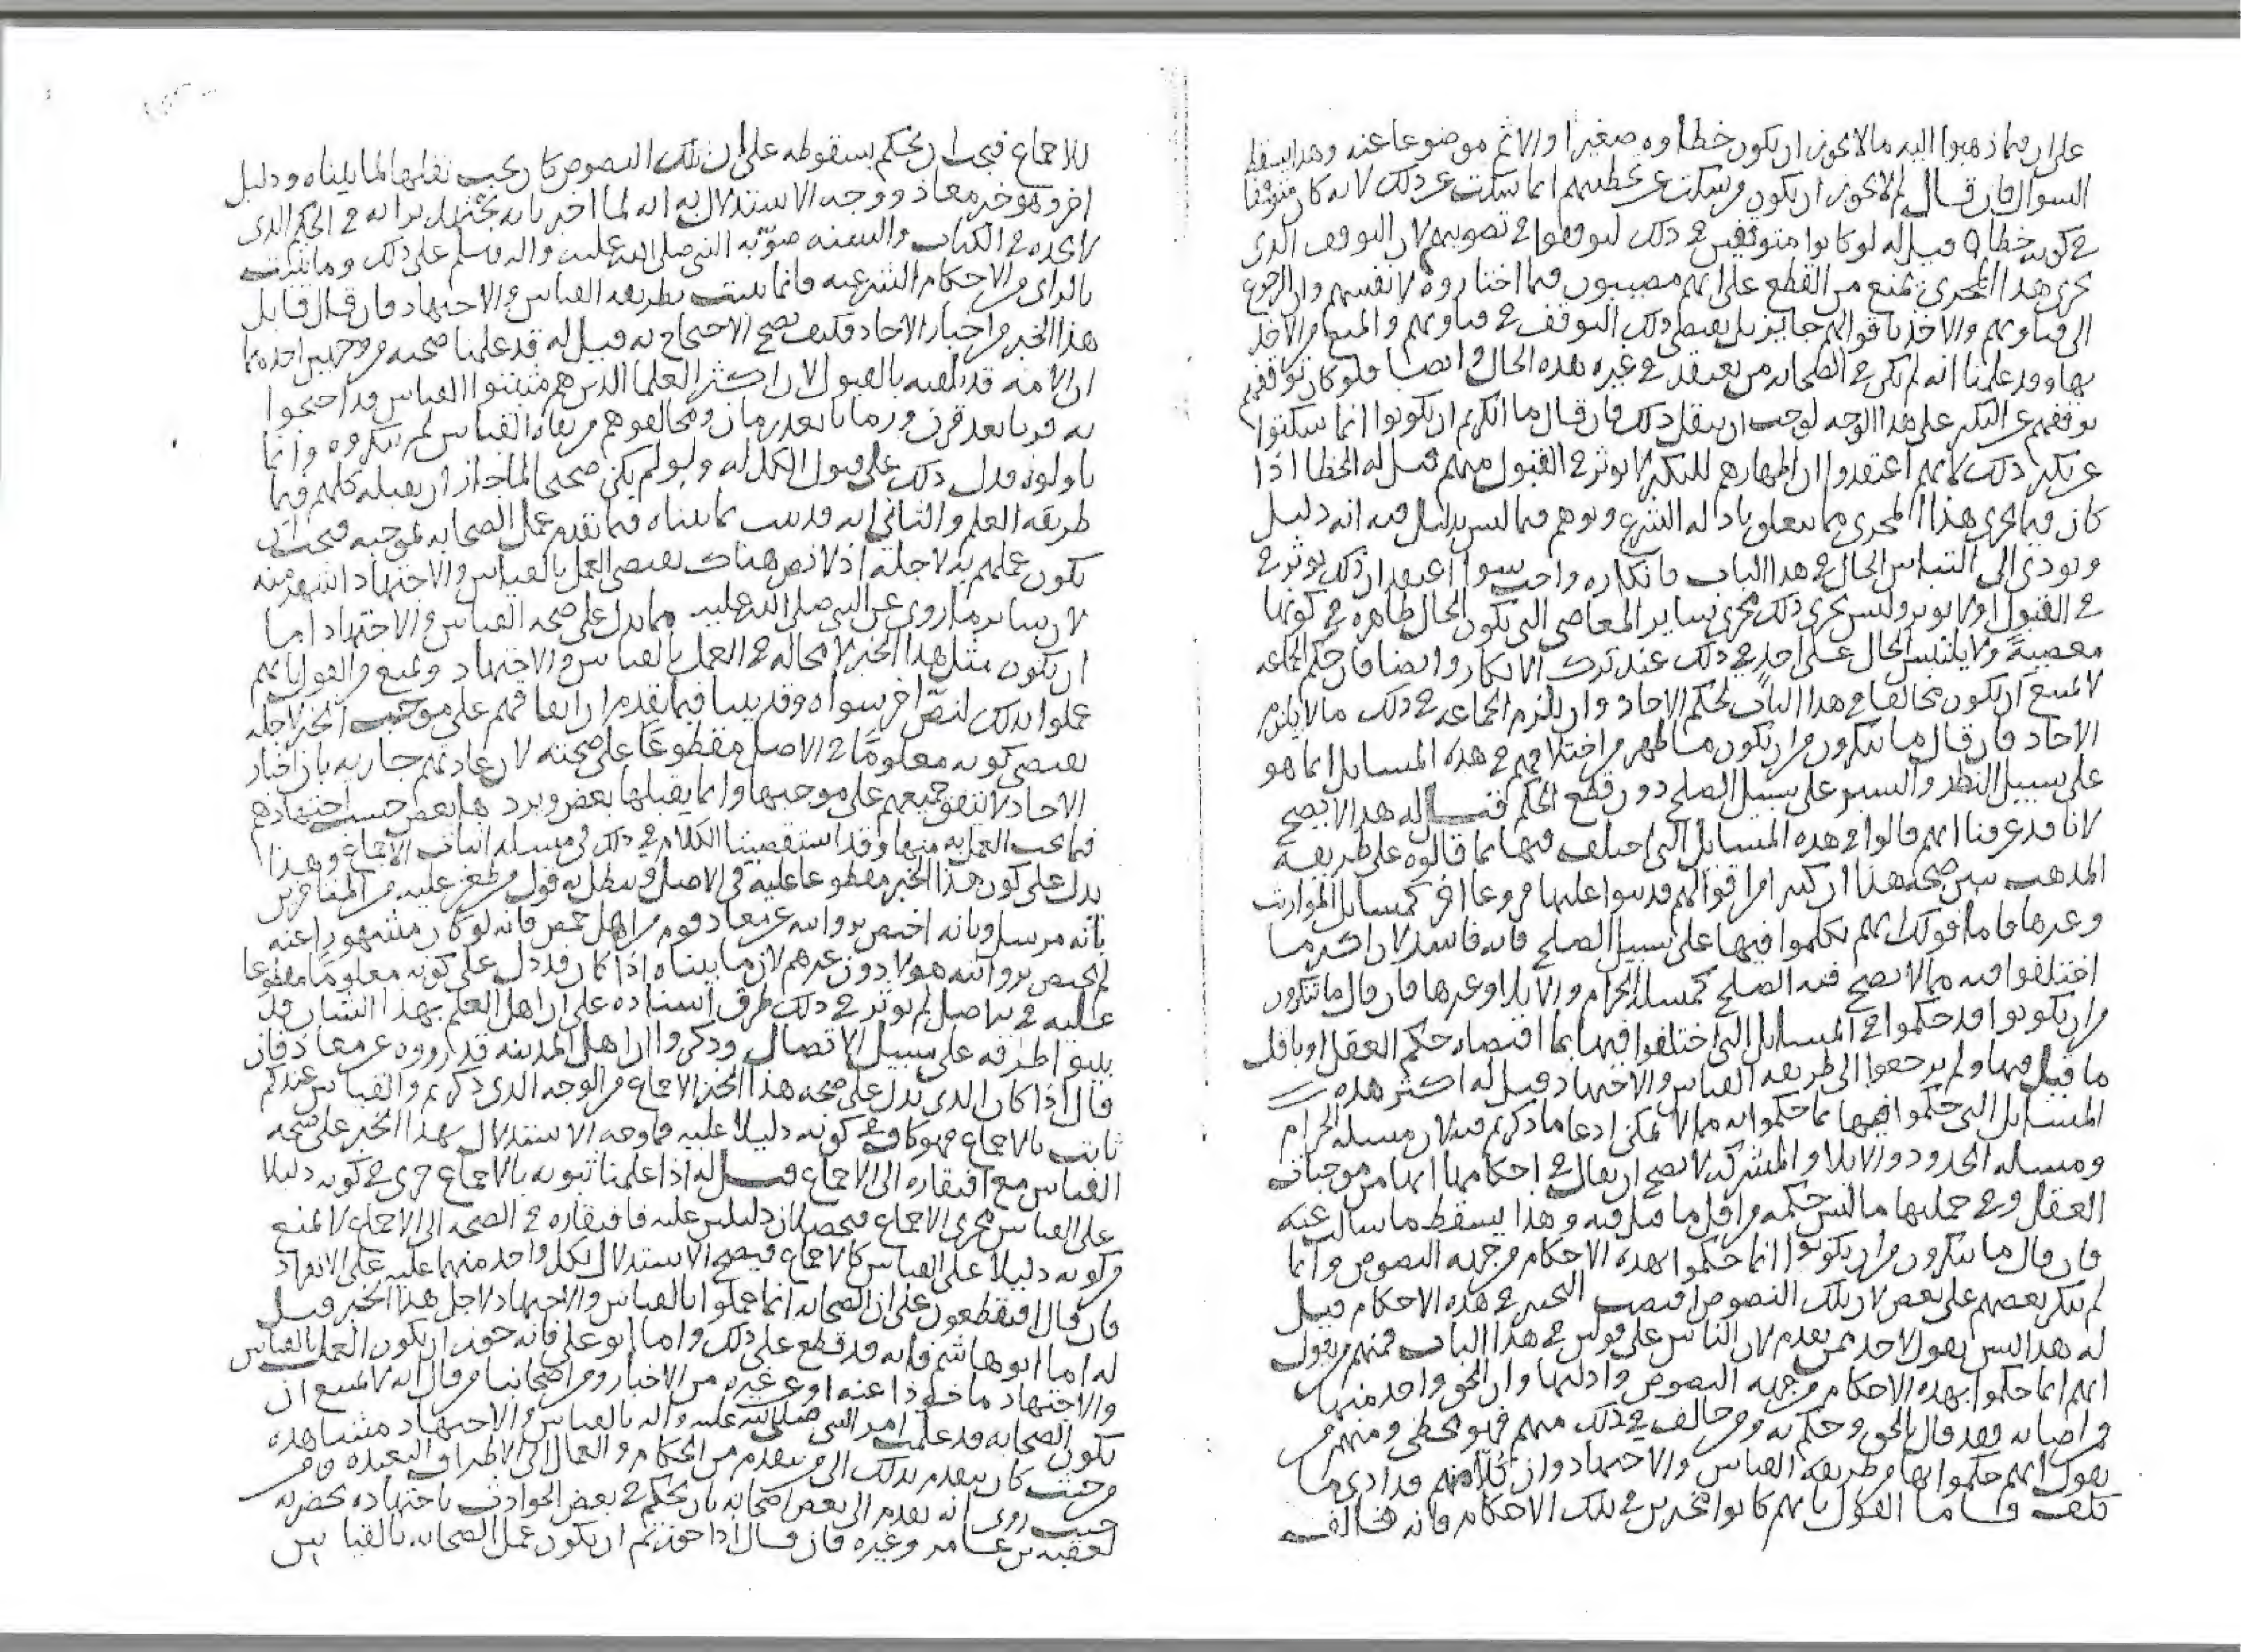 على ان فيما ذهبوا اليه ما لا يجوز ان يكون خطاوه صغيرا والاثم موضوعا عنه وهذا يسقط
السوال فان قال لم لا يجوز ان يكون من سكت عن تخطيتهم انما سكت عن ذلك لانه كان متوقفا
في كونه خطا قيل له لو كانوا متوقفين في ذلك لتوقفوا في تصويبهم لان التوقف الذي
يجري هذا المجرى يمنع من القطع على انهم مصيبون فيما اختاروه لانفسهم وان الرجوع
الى فتاويهم والاخذ باقوالهم جايز بل يقتضي ذلك التوقف في فتاويهم والمنع من الاخذ
بها وقد علمنا انه لم يكن في الصحابه من يعتقد في غيره هذه الحال وايضا فلو كان توقفهم
توقفهم عن النكير على هذا الوجه لوجب ان ينقل ذلك فان قال ما انكرتم ان يكونوا انما سكتوا
عن نكير ذلك لانهم اعتقدوا ان اظهارهم للنكير لا يوثر في القبول منهم قيل له الخطا اذا
كان فيما يجري هذا المجرى مما يتعلق بادله الشرع ويوهم فيما ليس بدليل فيه انه دليل
ويودي الى التباس الحال في هذا الباب فانكاره واجب سوا اعتقد ان ذلك يوثر في
في القبول او لا يوثر وليس يجري ذلك مجرى ساير المعاصي التي يكون الحال ظاهره في كونها
معصية ولا يلتبس الحال على احد في ذلك عند ترك الانكار وايضا فان حكم الجماعه
لا يمتنع ان يكون مخالفا في هذا الباب لحكم الاحاد وان يلزم الجماعه في ذلك ما لا يلزم
الاحاد فان قال ما تنكرون من ان يكون ما ظهر من اختلافهم في هذه المسايل انما هو
على سبيل النظر والسبر على سبيل الصلح دون قطع الحكم قيل له هذا لا يصح
لانا قد عرفنا انهم قالوا في هذه المسايل التي اختلف فيها بما قالوه على طريقه
المذهب يبين صحه هذا ان كثيرا من اقوالهم قد بنوا عليها فروعا اخر كمسايل المواريث
وغيرها فاما قولك انهم تكلموا فيها على سبيل الصلح فانه فاسد لان اكثر ما
اختلفوا فيه مما لا يصح فيه الصلح كمسله الحرام والايلا وغيرها فان قال ما تنكرون
من ان يكونوا قد حكموا في المسايل التي اختلفوا فيها بما اقتضاه حكم العقل او باقل
ما قيل فيها ولم يرجعوا الى طريقه القياس والاجتهاد قيل له اكثر هذه
المسايل التي حكموا فيها بما حكموا به مما لا يمكن ادعا ما ذكرتم فيه لان مسله الحرام
ومسله الحدود والايلا والمشركه لا يصح ان يقال في احكامها انها من موجبات
العقل وفي جملتها ما ليس حكمه من اقل ما قيل فيه وهذا يسقط ما سال عنه
فان قال ما تنكرون من ان يكونوا انما حكموا بهذه الاحكام من جهه النصوص وانما
لم ينكر بعضهم على بعض لان تلك النصوص اقتضت التخيير في هذه الاحكام قيل
له هذا ليس بقول لاحد ممن تقدم لان الناس على قولين في هذا الباب فمنهم من يقول
انهم انما حكموا بهذه الاحكام من جهه النصوص وادلتها وان الحق واحد منها
من اصابه فقد قال بالحق وحكم به ومن خالف في ذلك منهم فهو مخطي ومنهم من
يقول انهم حكموا بها من طريقه القياس والاجتهاد وان كلا منهم قد ادى ما
كلف فاما القول بانهم كانوا مخيرين في تلك الاحكام فانه مخالف
للاجماع فيجب ان يحكم بسقوطه على ان تلك النصوص كان يجب نقلها لما بيناه ودليل
اخر وهو خبر معاذ ووجه الاستدلال به انه لما اخبر بانه يجتهد برايه في الحكم الذي
لا يجده في الكتاب والسنه صوبه النبي صلى الله عليه واله وسلم على ذلك وما يثبت
بالراي من الاحكام الشرعيه فانما يثبت بطريقه القياس والاجتهاد فان قال قايل
هذا الخبر من اخبار الاحاد فكيف يصح الاحتجاج به قيل له قد علمنا صحته من وجهين احدهما
ان الامه قد تلقته بالقبول لان اكثر العلما الذين هم مثبتوا القياس قد احتجوا
به قرنا بعد قرن وزمانا بعد زمان ومخالفوهم من نفاه القياس لم ينكروه وانما
تاولوه فدل ذلك على قبول الكل له ولو لم يكن صحيحا لما جاز ان يقبله كلهم فيما
طريقه العلم والثاني انه قد ثبت بما بيناه فيما تقدم عمل الصحابه بموجبه فيجب ان
يكون عملهم به لاجله اذ لا نص هناك يقتضي العمل بالقياس والاجتهاد اشهر منه
لان ساير ما روي عن النبي صلى الله عليه مما يدل على صحه القياس والاجتهاد اما
ان يكون مثل هذا الخبر لا محاله في العمل بالقياس والاجتهاد ويمنع من القول بانهم
عملوا بذلك لنص اخر سواه وقد بينا فيما تقدم ان اتفاقهم على موجب الخبر لاجله
يقتضي كونه معلوما في الاصل مقطوعا على صحته لان عادتهم جاريه بان اخبار
الاحاد لا تتفق جميعهم على موجبها وانما يقبلها بعض ويردها بعض حسب اجتهادهم
فيما يجب العمل به منها وقد استقصينا الكلام في ذلك في مسله اثبات الاجماع وهذا
يدل على كون هذا الخبر مقطوعا عليه في الاصل ويبطل به قول من طعن عليه من المتاخرين
بانه مرسل وبانه اختص بروايته عن معاذ قوم من اهل حمص فانه لو كان مشهورا عنه
لم يختص بروايته هولا دون غيرهم لان ما بيناه اذا كان قد دل على كونه معلوما مقطوعا
عليه في الاصل لم يوثر في ذلك طرق اسناده على ان اهل العلم بهذا الشان قد
بينوا طرقه على سبيل الاتصال وذكروا ان اهل المدينه قد رووه عن معاذ فان
قال اذا كان الذي يدل على صحه هذا الخبر الاجماع من الوجه الذي ذكرتم والقياس عندكم
ثابت بالاجماع فهو كاف في كونه دليلا عليه فما وجه الاستدلال بهذا الخبر على صحه
القياس مع افتقاره الى الاجماع قيل له اذا علمنا ثبوته بالاجماع جرى في كونه دليلا
على القياس مجرى الاجماع فيحصلان دليلين عليه فافتقاره في الصحه الى الاجماع لا يمنع
من كونه دليلا على القياس كالاجماع فيصح الاستدلال بكل واحد منهما عليه على الانفراد
فان قال افتقطعون على ان الصحابه انما عملوا بالقياس والاجتهاد لاجل هذا الخبر قيل
له اما ابو هاشم فانه قد قطع على ذلك واما ابو علي فانه جوز ان يكون العمل بالقياس
والاجتهاد ماخوذا عنه او عن غيره من الاخبار ومن اصحابنا من قال انه لا يمتنع ان
تكون الصحابه قد علمت امر النبي صلى الله عليه واله بالقياس والاجتهاد مشاهده
من حيث كان يتقدم بذلك الى من يتقدم من الحكام والعمال الى الاطراف البعيده ومن
حيث روي انه تقدم الى بعض اصحابه بان يحكم في بعض الحوادث باجتهاده بحضرته
لعقبه بن عامر وغيره فان قال اذا جوزتم ان يكون عمل الصحابه بالقياس